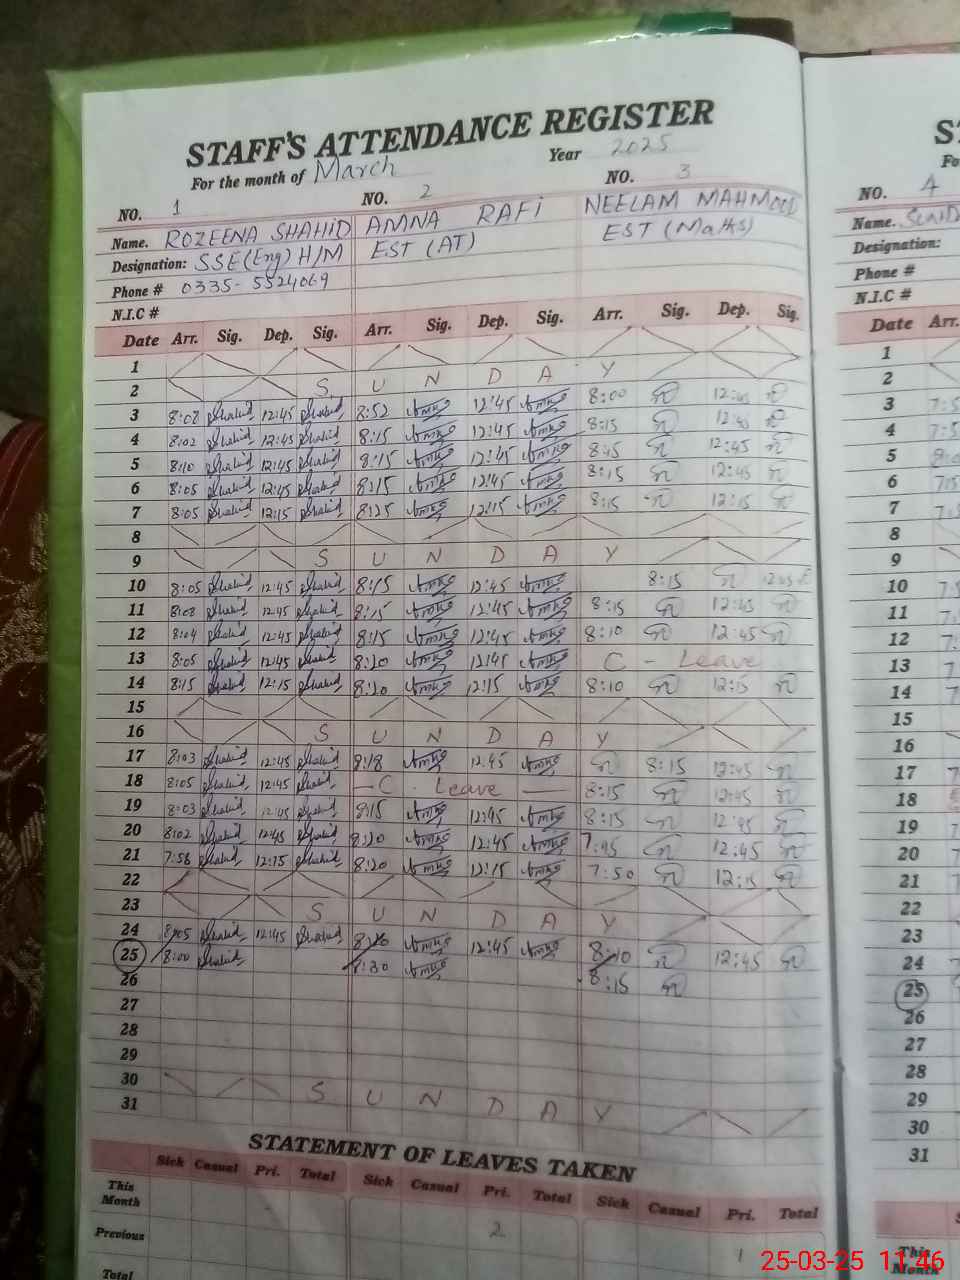 STAFF'S ATTENDANCE REGISTER
For the month of March Year 2025
NO. 1 NO. 2 NO. 3
Name. ROZEENA SHAHID AMNA RAFI NEELAM MAHMOOD
Designation: SSE(Eng) H/M EST (AT) EST (Maths)
Phone # 0335-5524069
N.I.C #
Date Arr. Sig. Dep. Sig. Arr. Sig. Dep. Sig. Arr. Sig. Dep. Sig.
1
2 S U N D A Y
3 8:08 Shahid 12:45 Shahid 8:52 12:45 8:00 12:45
4 8:02 Shahid 12:45 Shahid 8:15 12:45 8:15 12:45
5 8:10 Shahid 12:45 Shahid 8:15 12:45 8:15 12:45
6 8:05 Shahid 12:45 Shahid 8:15 12:45 8:15 12:45
7 8:05 Shahid 12:15 Shahid 8:25 12:15 8:15 12:15
8
9 S U N D A Y
10 8:05 Shahid 12:45 Shahid 8:15 12:45 8:15
11 8:08 Shahid 12:45 Shahid 8:15 12:45 8:15 12:45
12 8:04 Shahid 12:45 Shahid 8:15 12:45 8:10 12:45
13 8:05 Shahid 12:45 Shahid 8:20 12:45 C - Leave
14 8:15 Shahid 12:15 Shahid 8:20 12:15 8:10 12:15
15
16 S U N D A Y
17 8:03 Shahid 12:45 Shahid 8:18 12:45 8:15 12:45
18 8:05 Shahid 12:45 Shahid - C - Leave - 8:15 12:45
19 8:03 Shahid 12:45 Shahid 8:15 12:45 8:15 12:45
20 8:02 Shahid 12:45 Shahid 8:20 12:45 7:45 12:45
21 7:58 Shahid 12:15 Shahid 8:20 12:15 7:50 12:15
22
23 S U N D A Y
24 8:05 Shahid 12:45 Shahid 12:45 8:10 12:45
25 8:00 Shahid 8:30 8:15
26
27
28
29
30 S U N D A Y
31
STATEMENT OF LEAVES TAKEN
Sick Casual Pri. Total Sick Casual Pri. Total Sick Casual Pri. Total
This Month
Previous 2 1
Total
NO. 4
Name.
Designation:
Phone #
N.I.C #
Date Arr.
1
2
3
4
5
6
7
8
9
10
11
12
13
14
15
16
17
18
19
20
21
22
23
24
25
26
27
28
29
30
31
This Month
25-03-25 11:46